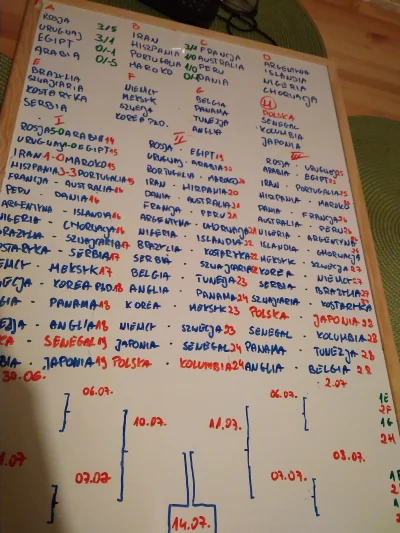 A
ROSJA 3/5
URUGUAJ 3/1
EGIPT 0/-1
ARABIA 0/-5
B
IRAN 3/1
HISZPANIA 1/0
PORTUGALIA 1/0
MAROKO 0/-1
C
FRANCJA
AUSTRALIA
PERU
DANIA
D
ARGENTYNA
ISLANDIA
NIGERIA
CHORWACJA
E
BRAZYLIA
SZWAJCARIA
KOSTARYKA
SERBIA
F
NIEMCY
MEKSYK
SZWECJA
KOREA PŁD.
G
BELGIA
PANAMA
TUNEZJA
ANGLIA
H
POLSKA
SENEGAL
KOLUMBIA
JAPONIA
I
ROSJA 5-0 ARABIA 14
URUGUAJ 1-0 EGIPT 15
IRAN 1-0 MAROKO 15
HISZPANIA 3-3 PORTUGALIA 15
FRANCJA - AUSTRALIA 16
PERU - DANIA 16
ARGENTYNA - ISLANDIA 16
NIGERIA - CHORWACJA 16
BRAZYLIA - SZWAJCARIA 17
KOSTARYKA - SERBIA 17
NIEMCY - MEKSYK 17
SZWECJA - KOREA PŁD. 18
BELGIA - PANAMA 18
TUNEZJA - ANGLIA 18
POLSKA - SENEGAL 19
KOLUMBIA - JAPONIA 19
II
ROSJA - EGIPT 19
URUGUAJ - ARABIA 20
PORTUGALIA - MAROKO 20
IRAN - HISZPANIA 20
DANIA - AUSTRALIA 21
FRANCJA - PERU 21
ARGENTYNA - CHORWACJA 21
NIGERIA - ISLANDIA 22
BRAZYLIA - KOSTARYKA 22
SERBIA - SZWAJCARIA 22
BELGIA - TUNEZJA 23
ANGLIA - PANAMA 24
KOREA - MEKSYK 23
NIEMCY - SZWECJA 23
JAPONIA - SENEGAL 24
POLSKA - KOLUMBIA 24
III
ROSJA - URUGUAJ 25
ARABIA - EGIPT 25
IRAN - PORTUGALIA 25
HISZPANIA - MAROKO
DANIA - FRANCJA 26
AUSTRALIA - PERU 26
NIGERIA - ARGENTYNA
ISLANDIA - CHORWACJA
MEKSYK - SZWECJA 27
KOREA - NIEMCY 27
SERBIA - BRAZYLIA 27
SZWAJCARIA - KOSTARYKA
POLSKA - JAPONIA 28
SENEGAL - KOLUMBIA 28
PANAMA - TUNEZJA 28
ANGLIA - BELGIA 28
30.06.
2.07
06.07.
06.07.
10.07.
11.07.
1E
2F
1G
2H
07.07
07.07.
08.07.
14.07.